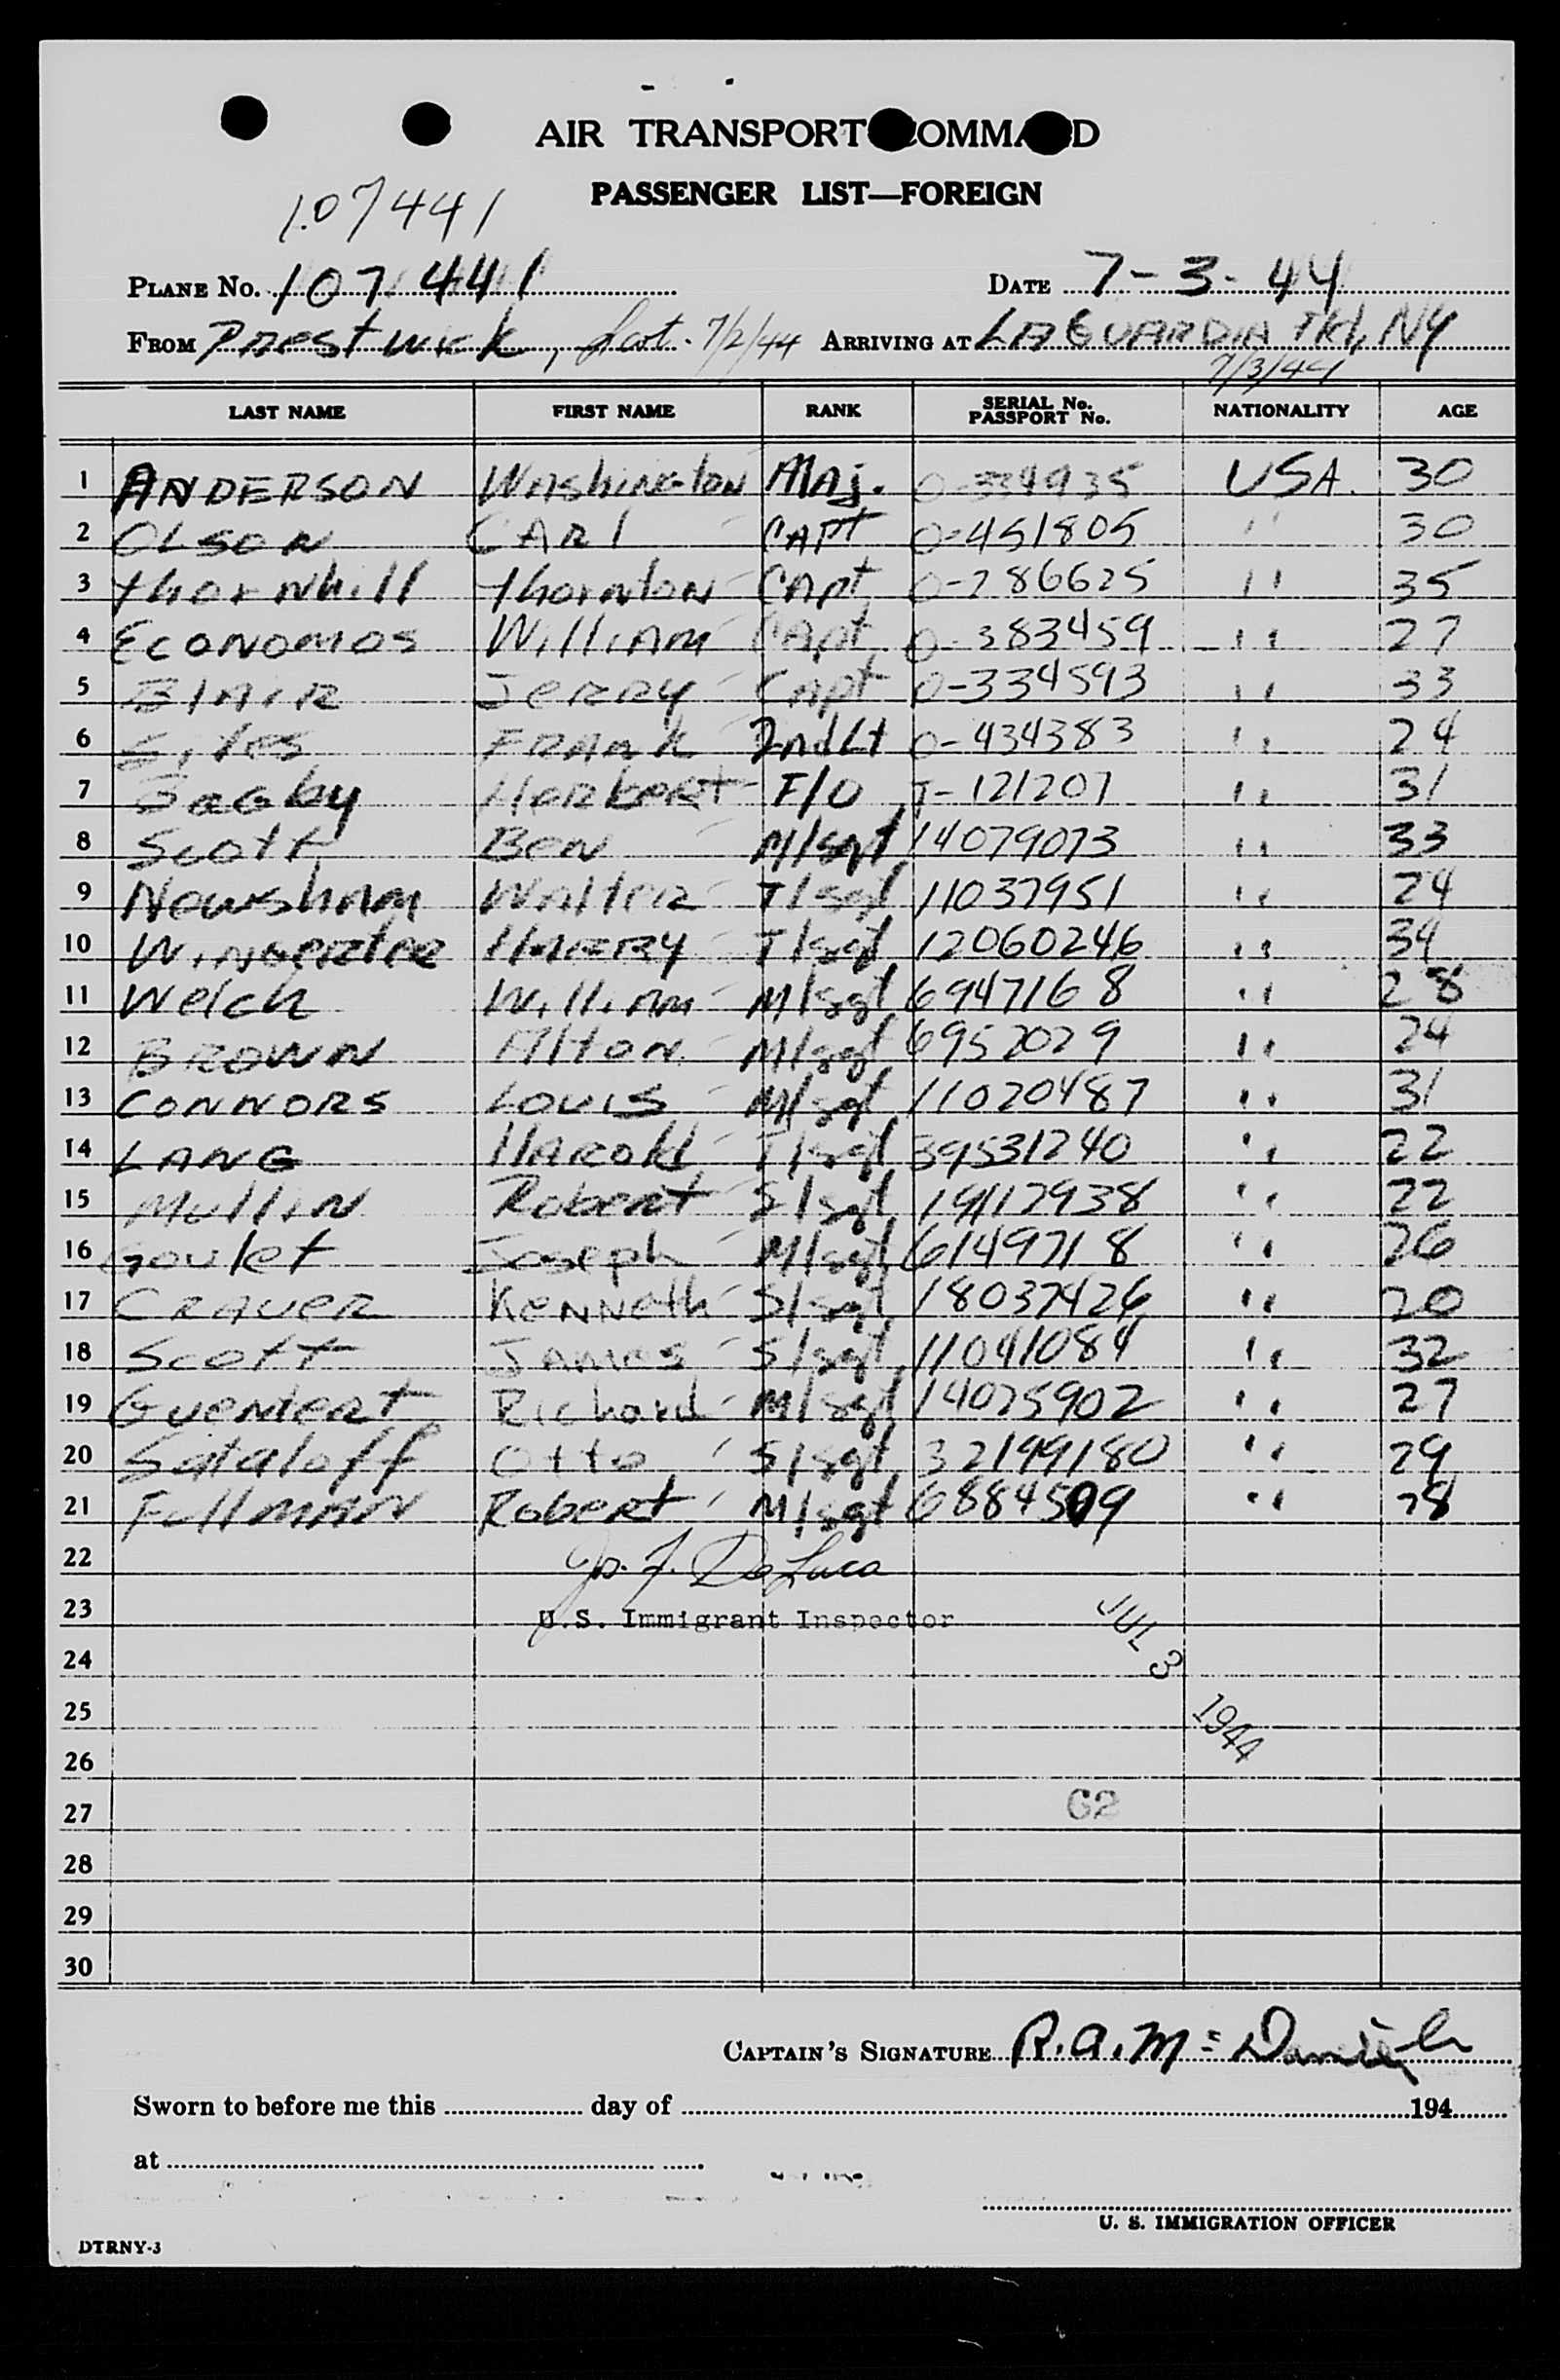 AIR TRANSPORT COMMAND
PASSENGER LIST—FOREIGN
107441
PLANE NO. 107441 DATE 7-3-44
FROM Prestwick, Scot. 7/2/44 ARRIVING AT LAGUARDIA Fld, NY
7/3/44
LAST NAME FIRST NAME RANK SERIAL No. PASSPORT No. NATIONALITY AGE
1 ANDERSON Washington Maj. O-334935 USA. 30
2 OLSON CARl CAPT O-451805 " 30
3 thornhill thornton CApt O-286625 " 35
4 ECONOMOS WilliAM CApt O-383459 " 27
5 BlAIR JeRRy CApt O-334593 " 33
6 Sites FRANK 2nd Lt O-434383 " 24
7 Bagby HerbeRt F/O T-121207 " 31
8 Scott Ben M/sgt 14079073 " 33
9 NewshAm WAlteR T/sgt 11037951 " 24
10 WingeRteR HARRy T/sgt 12060246 " 34
11 Welch WilliAm M/sgt 6947168 " 28
12 BROWN Alton M/sgt 6952029 " 24
13 CONNORS LOUIS M/sgt 11020487 " 31
14 LANG HARold T/sgt 39531240 " 22
15 MulliN RobeRt S/sgt 19112938 " 22
16 Goulet Joseph M/sgt 6149718 " 26
17 CRAveR KeNNeth S/sgt 18037426 " 20
18 Scott JAmes S/sgt 11041084 " 32
19 GueNteRt Richard M/sgt 14025902 " 27
20 Sataloff Otto S/sgt 32199180 " 29
21 FullmAN RobeRt M/sgt 6884509 " 28
22 Jos. F. DeLuca
23 U.S. Immigrant Inspector
JUL 3 1944
24
25
26
27 G2
28
29
30
CAPTAIN'S SIGNATURE R.A. McDaniel
Sworn to before me this day of 194
at
U. S. IMMIGRATION OFFICER
DTRNY-3